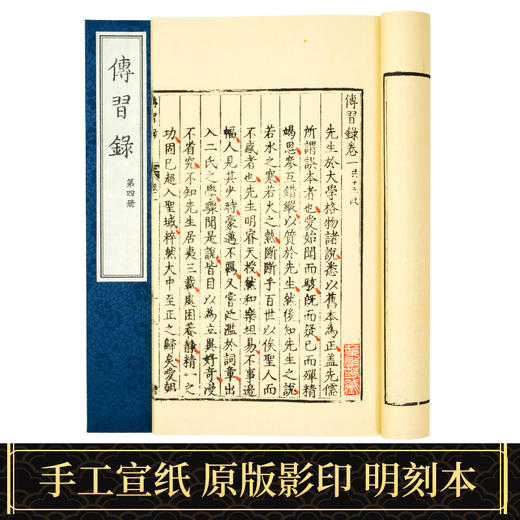 傳習錄
第四册
傳習錄卷一
先生於大學格物諸說悉以舊本為正蓋先儒
所謂誤本者也愛始聞而駭既而疑已而殫精
竭思參互錯縱以質於先生然後知先生之說
若水之寒若火之熱斷斷乎百世以俟聖人而
不惑者也先生明睿天授然和樂坦易不事邊
幅人見其少時豪邁不羈又嘗泛濫於詞章出
入二氏之學驟聞是說皆目以為立異好奇漫
不省究不知先生居夷三載處困養靜精一之
功固已超入聖域粹然大中至正之歸矣愛朝
手工宣纸 原版影印 明刻本